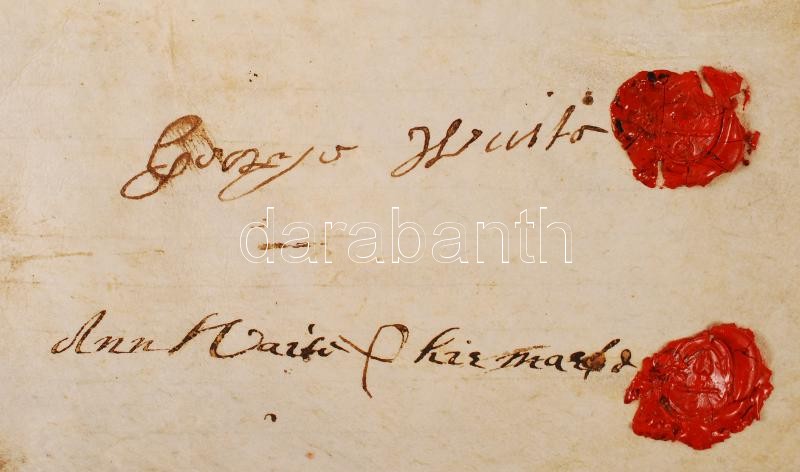 George Waite
darabanth
Ann Waite hir marke